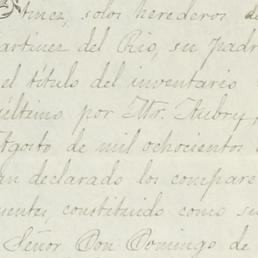 tinez, solos herederos de
artinez del Rio, su padr
el título del inventario
último por Mr. Aubry,
Agosto de mil ochocientos
an declarado los compare
uenta, constituido como su
Señor Don Domingo de